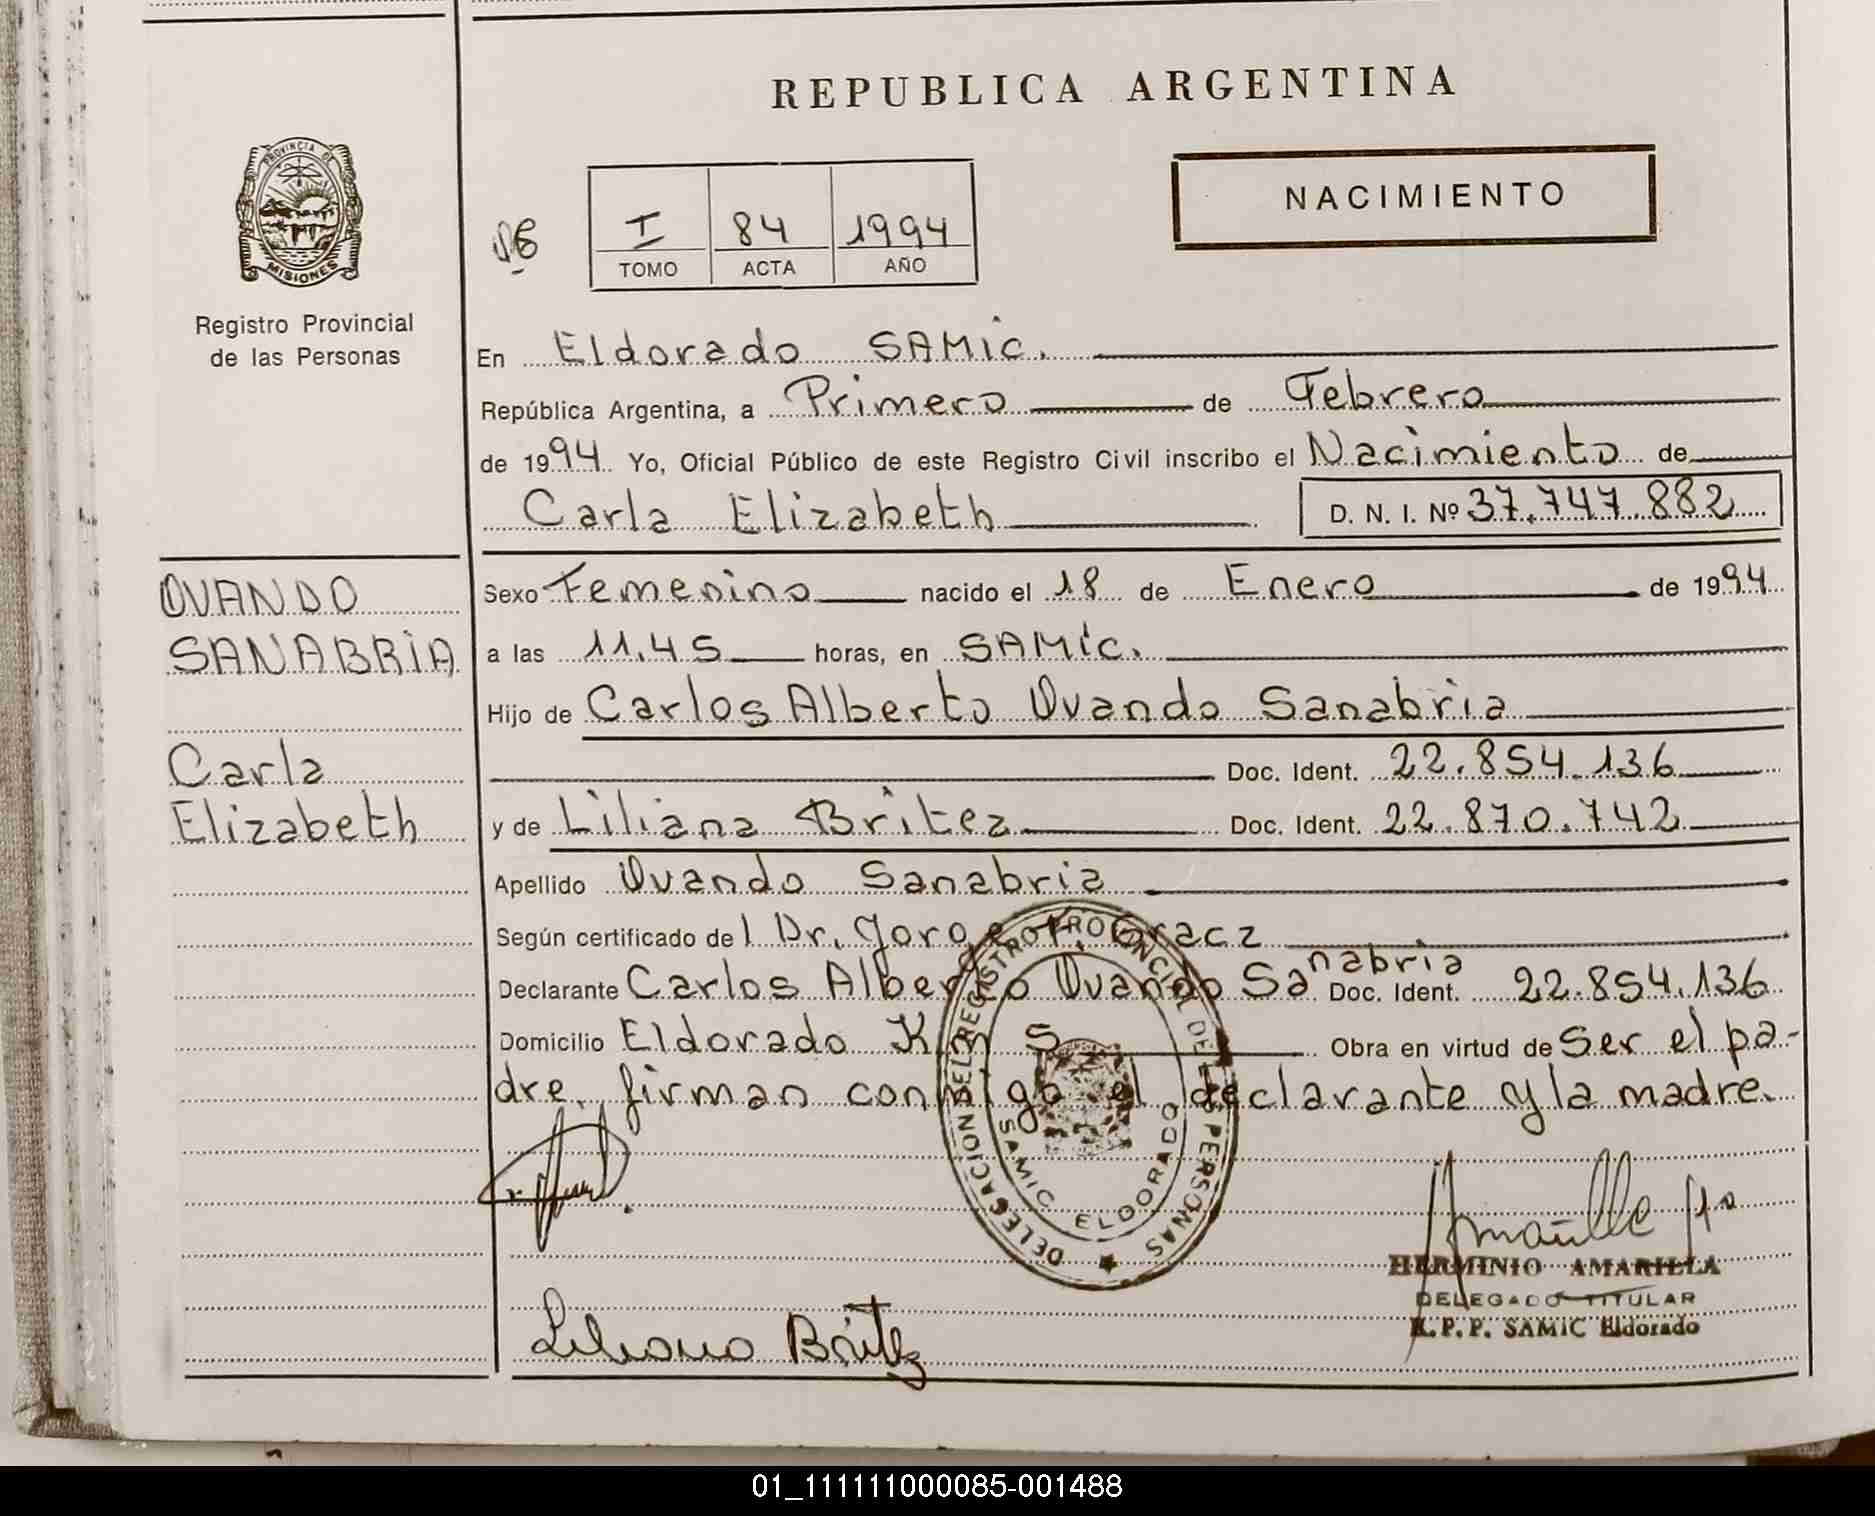 REPUBLICA ARGENTINA
PROVINCIA DE
MISIONES
Registro Provincial
de las Personas
I 84 1994
TOMO ACTA AÑO
NACIMIENTO
En Eldorado SAMic.
República Argentina, a Primero de Febrero
de 1994 Yo, Oficial Público de este Registro Civil inscribo el Nacimiento de
Carla Elizabeth D. N. I. Nº 37.747.882
OVANDO
SANABRIA
Carla
Elizabeth
Sexo Femenino nacido el 18 de Enero de 1994
a las 11.45 horas, en SAMic.
Hijo de Carlos Alberto Ovando Sanabria
Doc. Ident. 22.854.136
y de Liliana Britez Doc. Ident. 22.870.742
Apellido Ovando Sanabria
Según certificado del Dr. Jorge
Declarante Carlos Alberto Ovando Sanabria Doc. Ident. 22.854.136
Domicilio Eldorado Km 5 Obra en virtud de Ser el pa-
dre. firman conmigo el declarante y la madre.
DELEGACION DEL REGISTRO PROVINCIAL DE LAS PERSONAS
SAMIC ELDORADO
Liliana Britez
HERMINIO AMARILLA
DELEGADO TITULAR
R.P.P. SAMiC Eldorado
01_111111000085-001488